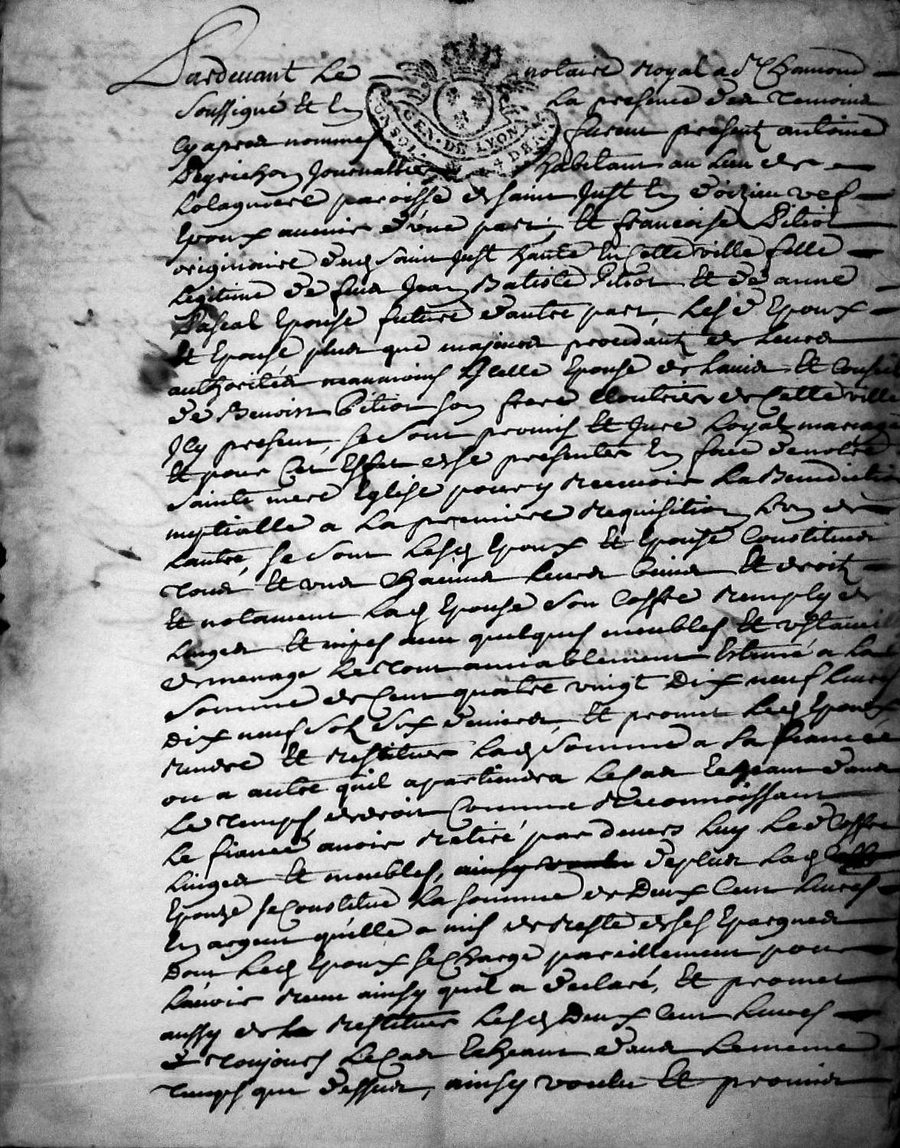 Pardevant Le notaire Royal a St Chamond
Soussigné et En La presence des Temoins
Cy apres nommes furent presents antoine
Degrichon Journallier habitant au Lieu de
Lolagniere paroisse de Saint Just En doizieu vef
Epoux avenir d'une part, Et francoise Piliot
originaire dud Saint Just hante En cette ville fille
Legitime de feus Jean Batiste Piliot Et de anne
Pascal Epouse future d'autre part, Lesd Epoux
Et Epouse plus que majeurs procedant de Leurs
authorités neanmoins Icelle Epouse de L'avis Et Conseil
De Benoist Piliot son frere Cloutrier de Cette ville
Icy present, se sont promis Et Juré Loyal mariage
Et pour Cet Effet de se presenter En face de notre
Sainte mere Eglise pour y Recevoir La Benediction
nuptialle a La premiere Requisition L'un de
Lautre, se sont Lesd Epoux Et Epouse Constitués
Tous Et uns Chacuns Leurs biens Et droits
Et notament Lad Epouse son Coffre Remply de
Linges Et nipes avec quelques meubles Et ustancils
de menage Le Tout amiablement Estimé a La
Somme de Cent quatre vingt Dix neuf Livres
Dix neuf Sols Six deniers Et promet Led Epoux
Rendre Et Restituer Lad Somme a La fiancée
ou a autre quil apartiendra Le Cas Echeant dans
Le Temps de droit Comme Reconnoissant
Le fiancé, avoir Retiré par devers Luy Led Coffre
Linges Et meubles, de plus Lad
Epouze se Constitue La Somme de Deux Cent Livres
En argent qu'elle a mis de Reste de ses Epargnes
Dont Led Epoux se Charge pareillement pour
L'avoir Reçu ainsy quil a declaré, Et promet
aussy de Restituer Lesd Deux Cent Livres
Toujours Le Cas Echeant dans Le meme
Temps que dessus, ainsy voulu Et promis
GEN. DE LYON